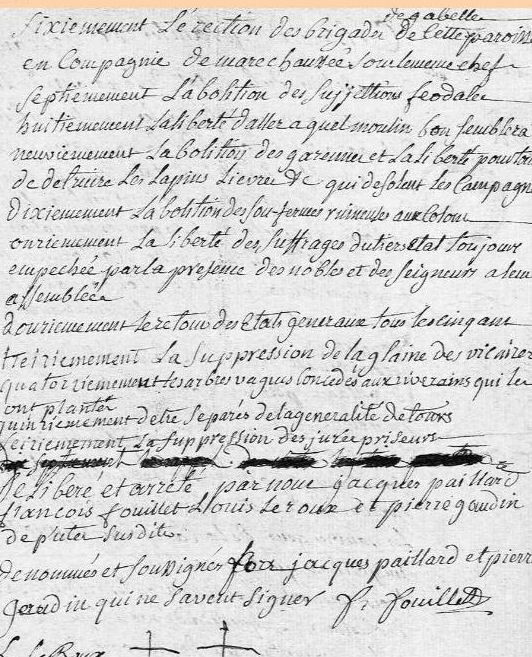 de gabelle
Sixiemement Lerection des brigades de cette paroisse
en Compagnie de marechaussée sous lememe chef
Septiemement Labolition des Sujjettions feodale
huitiemement Laliberté daller a quel moulin bon semblera
neuviemement Labolition des garennes et Laliberté pour tou
de detruire Les Lapins Lievre &c qui desolent les Campagn
dixiemement Labolition des sou-fermes ruineuses aux Colons
onziemement La liberté des suffrages du tiers etat toujours
empechée par la presence des nobles et des seigneurs a leur
assemblée
douziemement le retour des Etats generaux tous les cinq ans
treiziemement La Suppression de la glaine des vicaires
quatorziemement les arbres vagues Concedés aux riverains qui les
ont planter
quinziemement detre separés de la generalité de tours
seiziemement La suppression des jurée priseurs
delibéré et arrêté par nous jacques paillard
francois fouillet Louis Leroux et pierre gaudin
deputer susdits
denommés et soussignés fors jacques paillard et pierr
gaudin qui ne savent signer f. fouillet